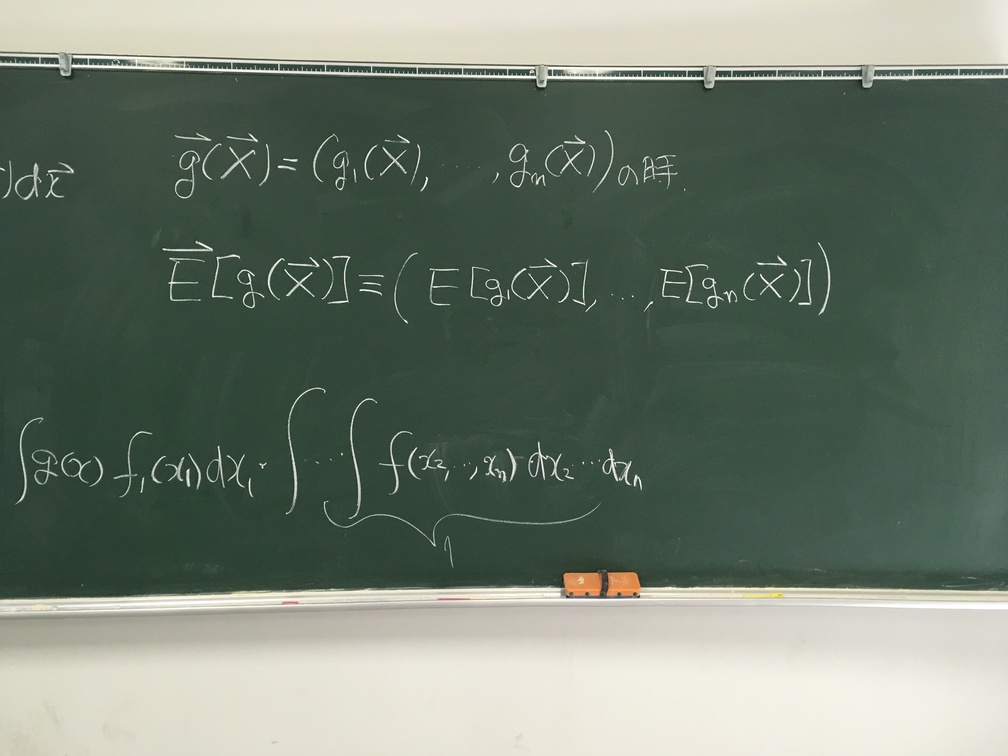 )dx⃗
g⃗(X⃗)=(g₁(X⃗), ⋯, gₙ(X⃗))の時.
E⃗[g(X⃗)]≡(E[g₁(X⃗)], ⋯, E[gₙ(X⃗)])
∫g(x) f₁(x₁)dx₁・∫⋯∫f(x₂, ⋯, xₙ) dx₂⋯dxₙ
1